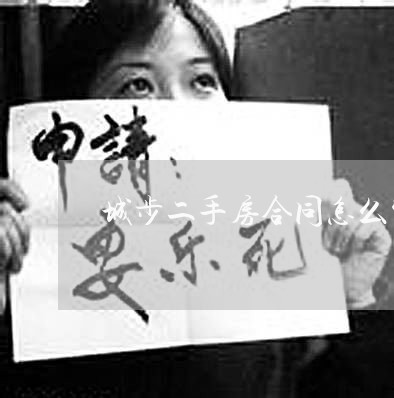 申請：
城步二手房合同怎么
安乐死